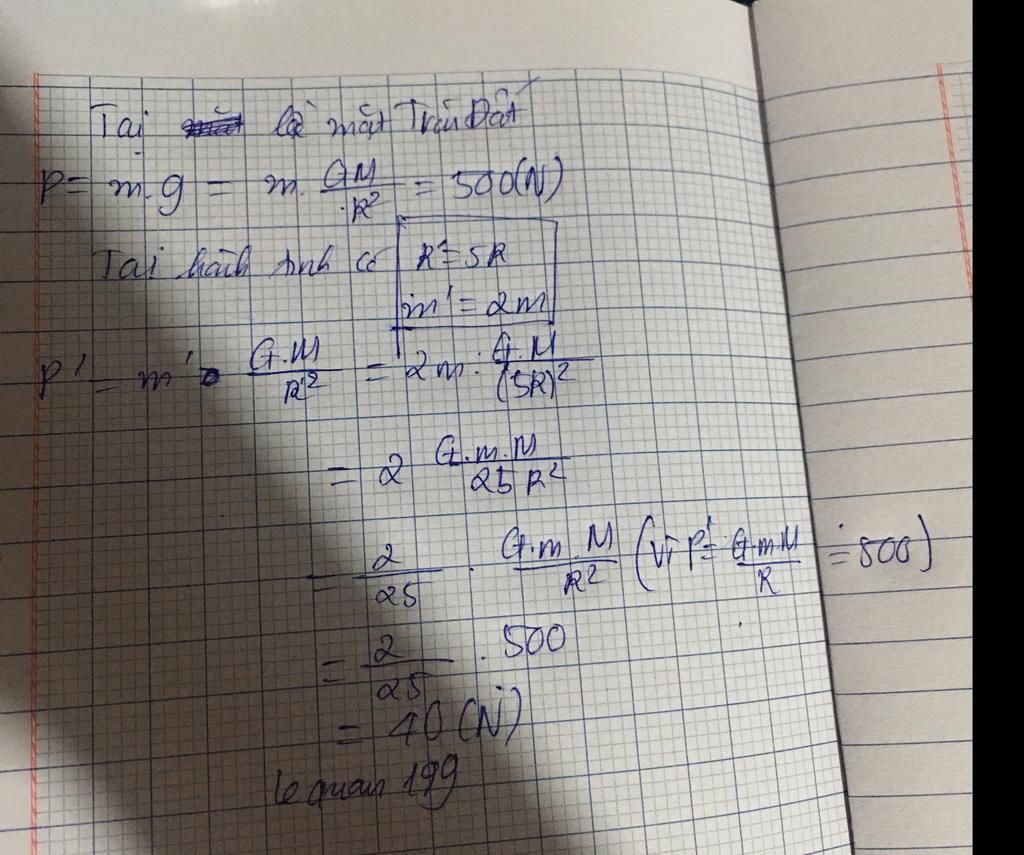 Tại bề mặt Trái Đất
P = m.g = m. GM/R² = 500(N)
Tại hành tinh có R' = 5R
m' = 2m
P' = m' . G.M/R'² = 2m . G.M/(5R)²
= 2 G.m.M/25R²
= 2/25 . G.m.M/R² (vì P' = G.m.M/R = 500)
= 2/25 . 500
= 40 (N)
lequan 199